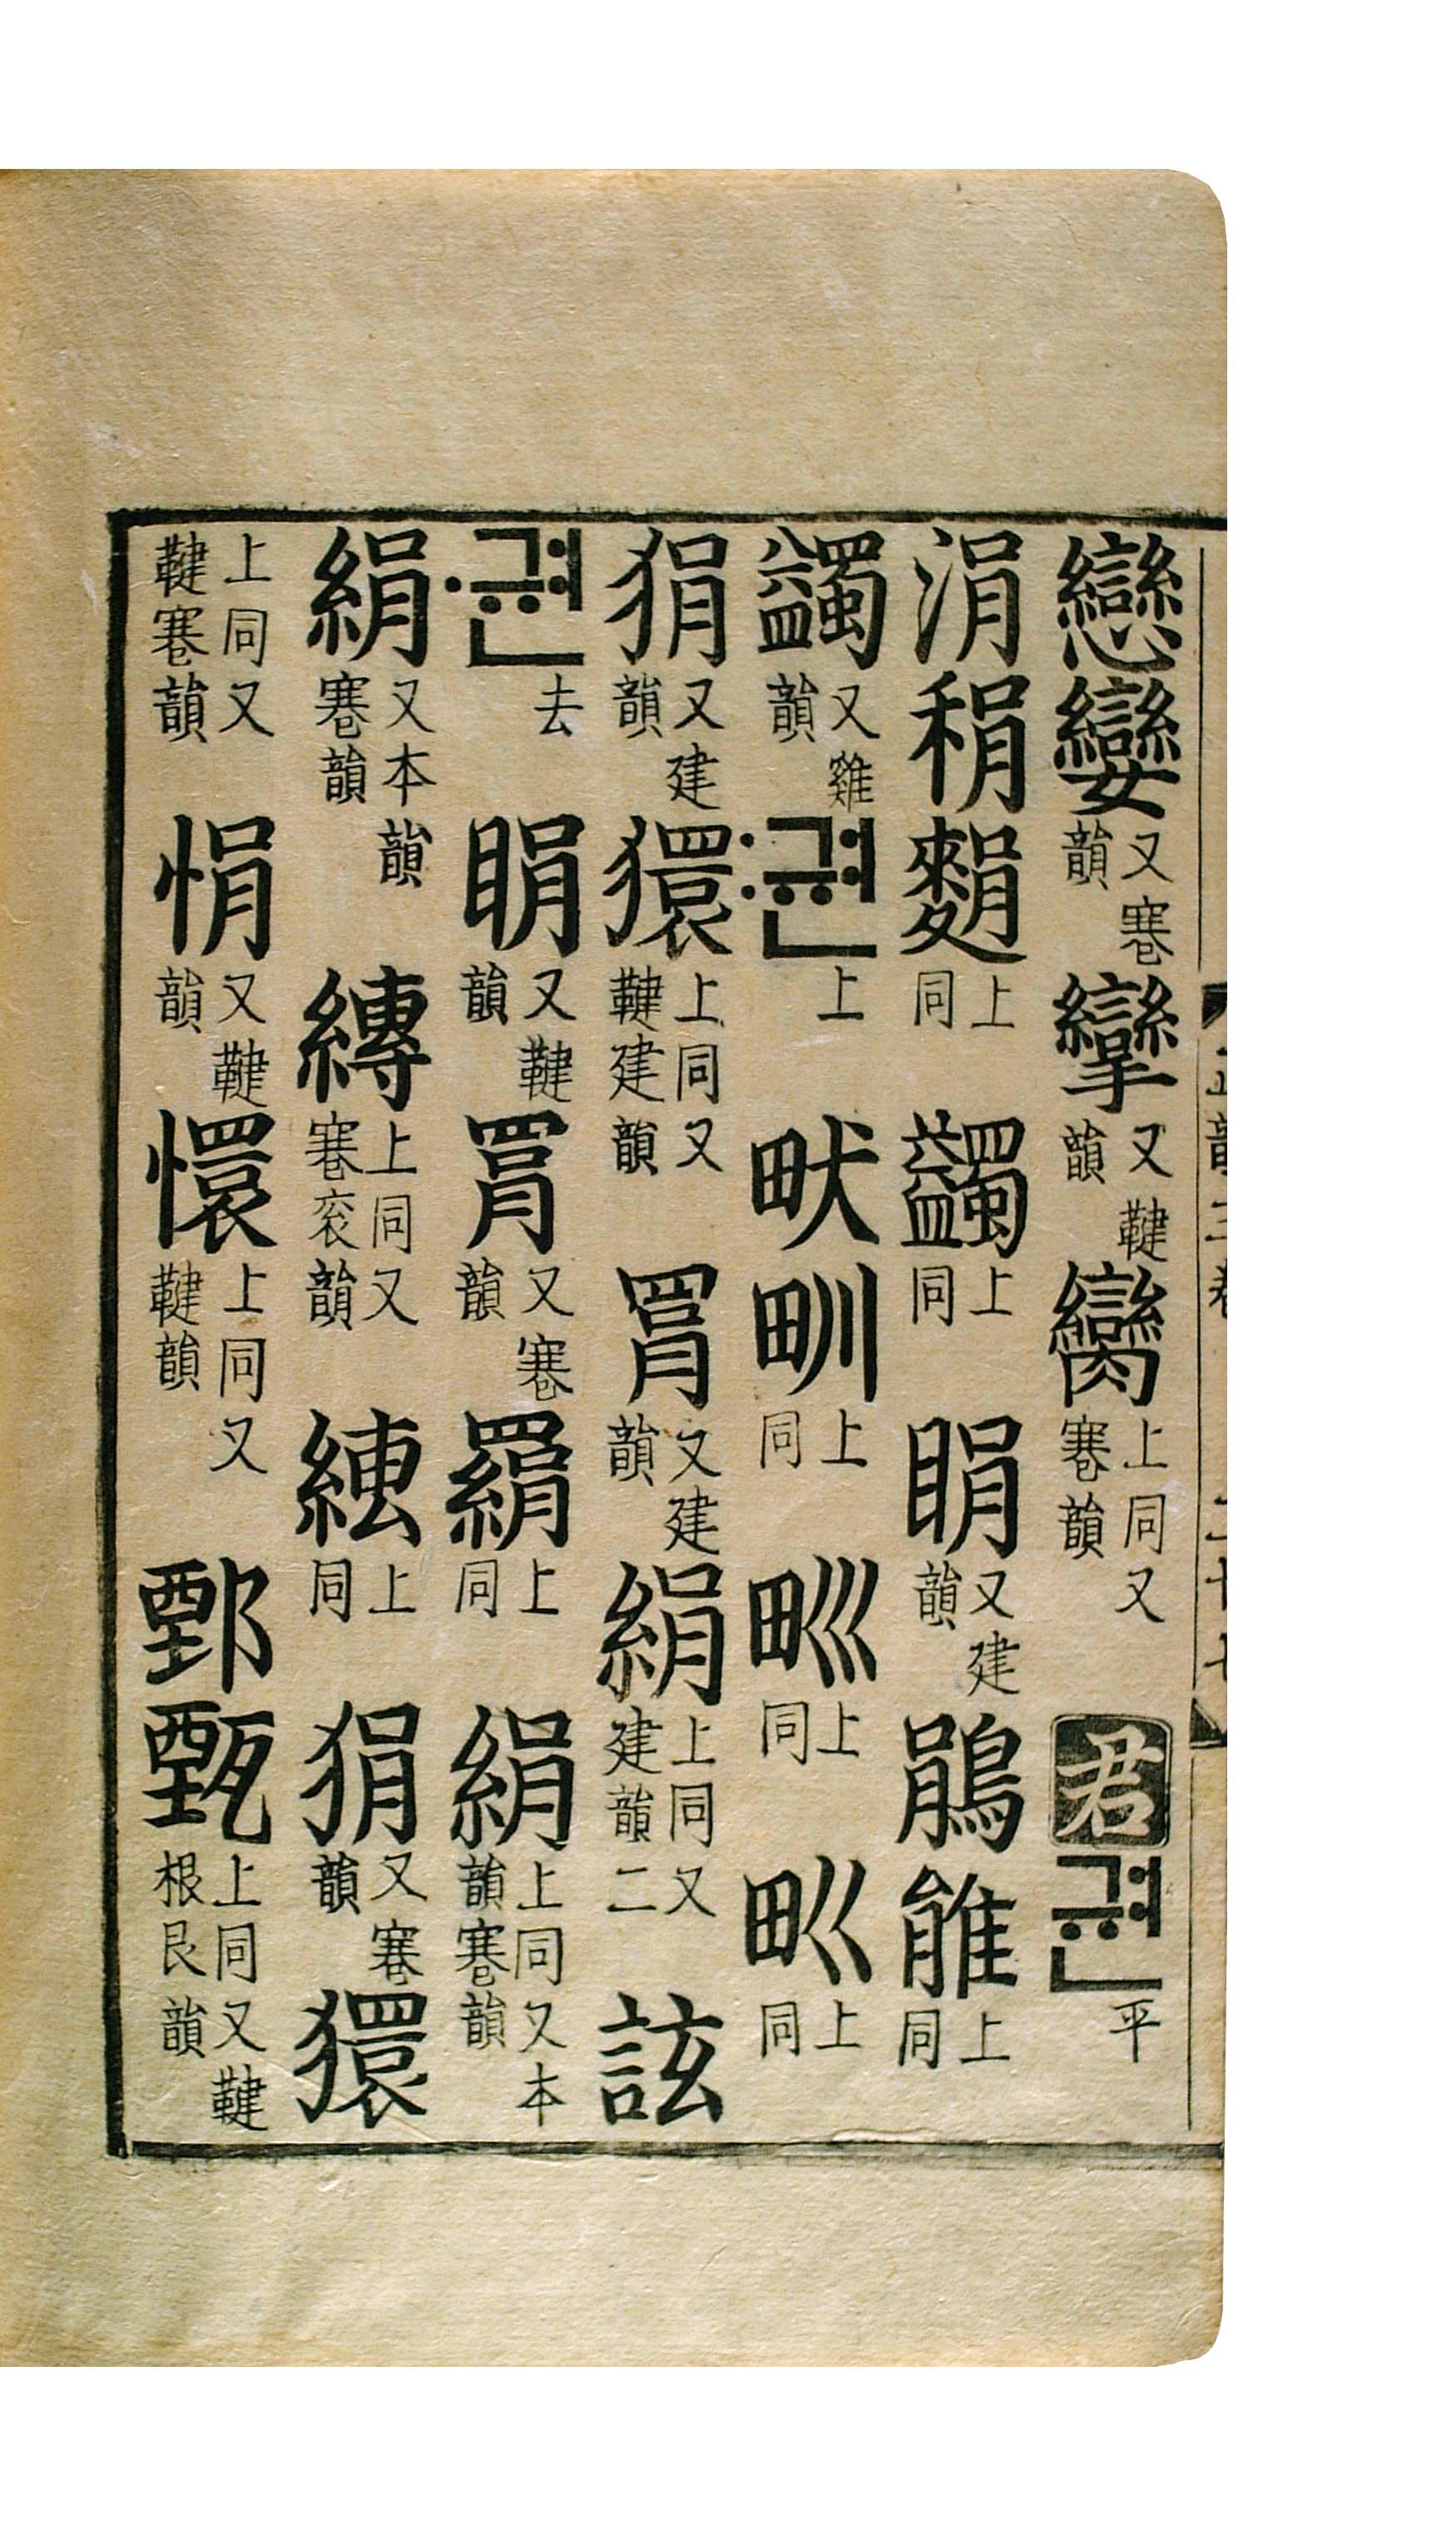 戀孌又寋韻攣又鞬韻臠上同又寋韻君ᄀᆑᆫ平
涓䅌上同蠲上同睊又建韻鵑上同
蠲又雞韻ᄀᆑᆫ〯上畎甽上同上同上同
狷又建韻獧上同又鞬建韻罥又建韻絹上同又建韻二誸
ᄀᆑᆫ〮去睊又鞬韻罥又寋韻羂上同絹上同又本韻寋韻
絹又本韻寋韻縳上同又寋袞韻上同狷又寋韻獧
上同又鞬寋韻悁又鞬韻懁上同又鞬韻鄄甄上同又鞬根艮韻